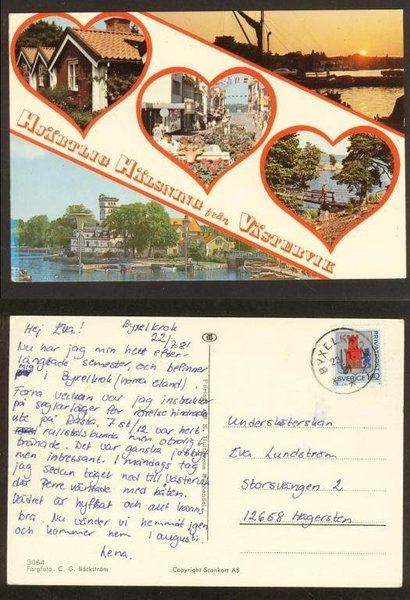 Hjärtlig Hälsning från Västervik
Hej Eva!
Byxelkrok
22/7 81
Nu har jag min hett efter-
längtade semester, och befinner
mig i Byxelkrok (norra Öland).
Förra veckan var jag instruktör
på seglarläger för rörelsehindrade
ute på Rasta, 7 st/12 var hert
rullstolsbundna men otroligt
tränade. Det var ganska jobbigt
men intressant. I måndags tog
jag sedan tåget ned till Västervik
där Perre väntade med båten.
Vädret är hyfsat och allt känns
bra. Nu vänder vi hemmåt igen
och kommer hem 1 augusti.
Lena.
3064
Färgfoto: C. G. Bäckström
Copyright Scankort AB
BYXELKROK
SVERIGE
PRIVATPOST
Undersköterskan
Eva Lundström
Storsvängen 2
12658 Hägersten